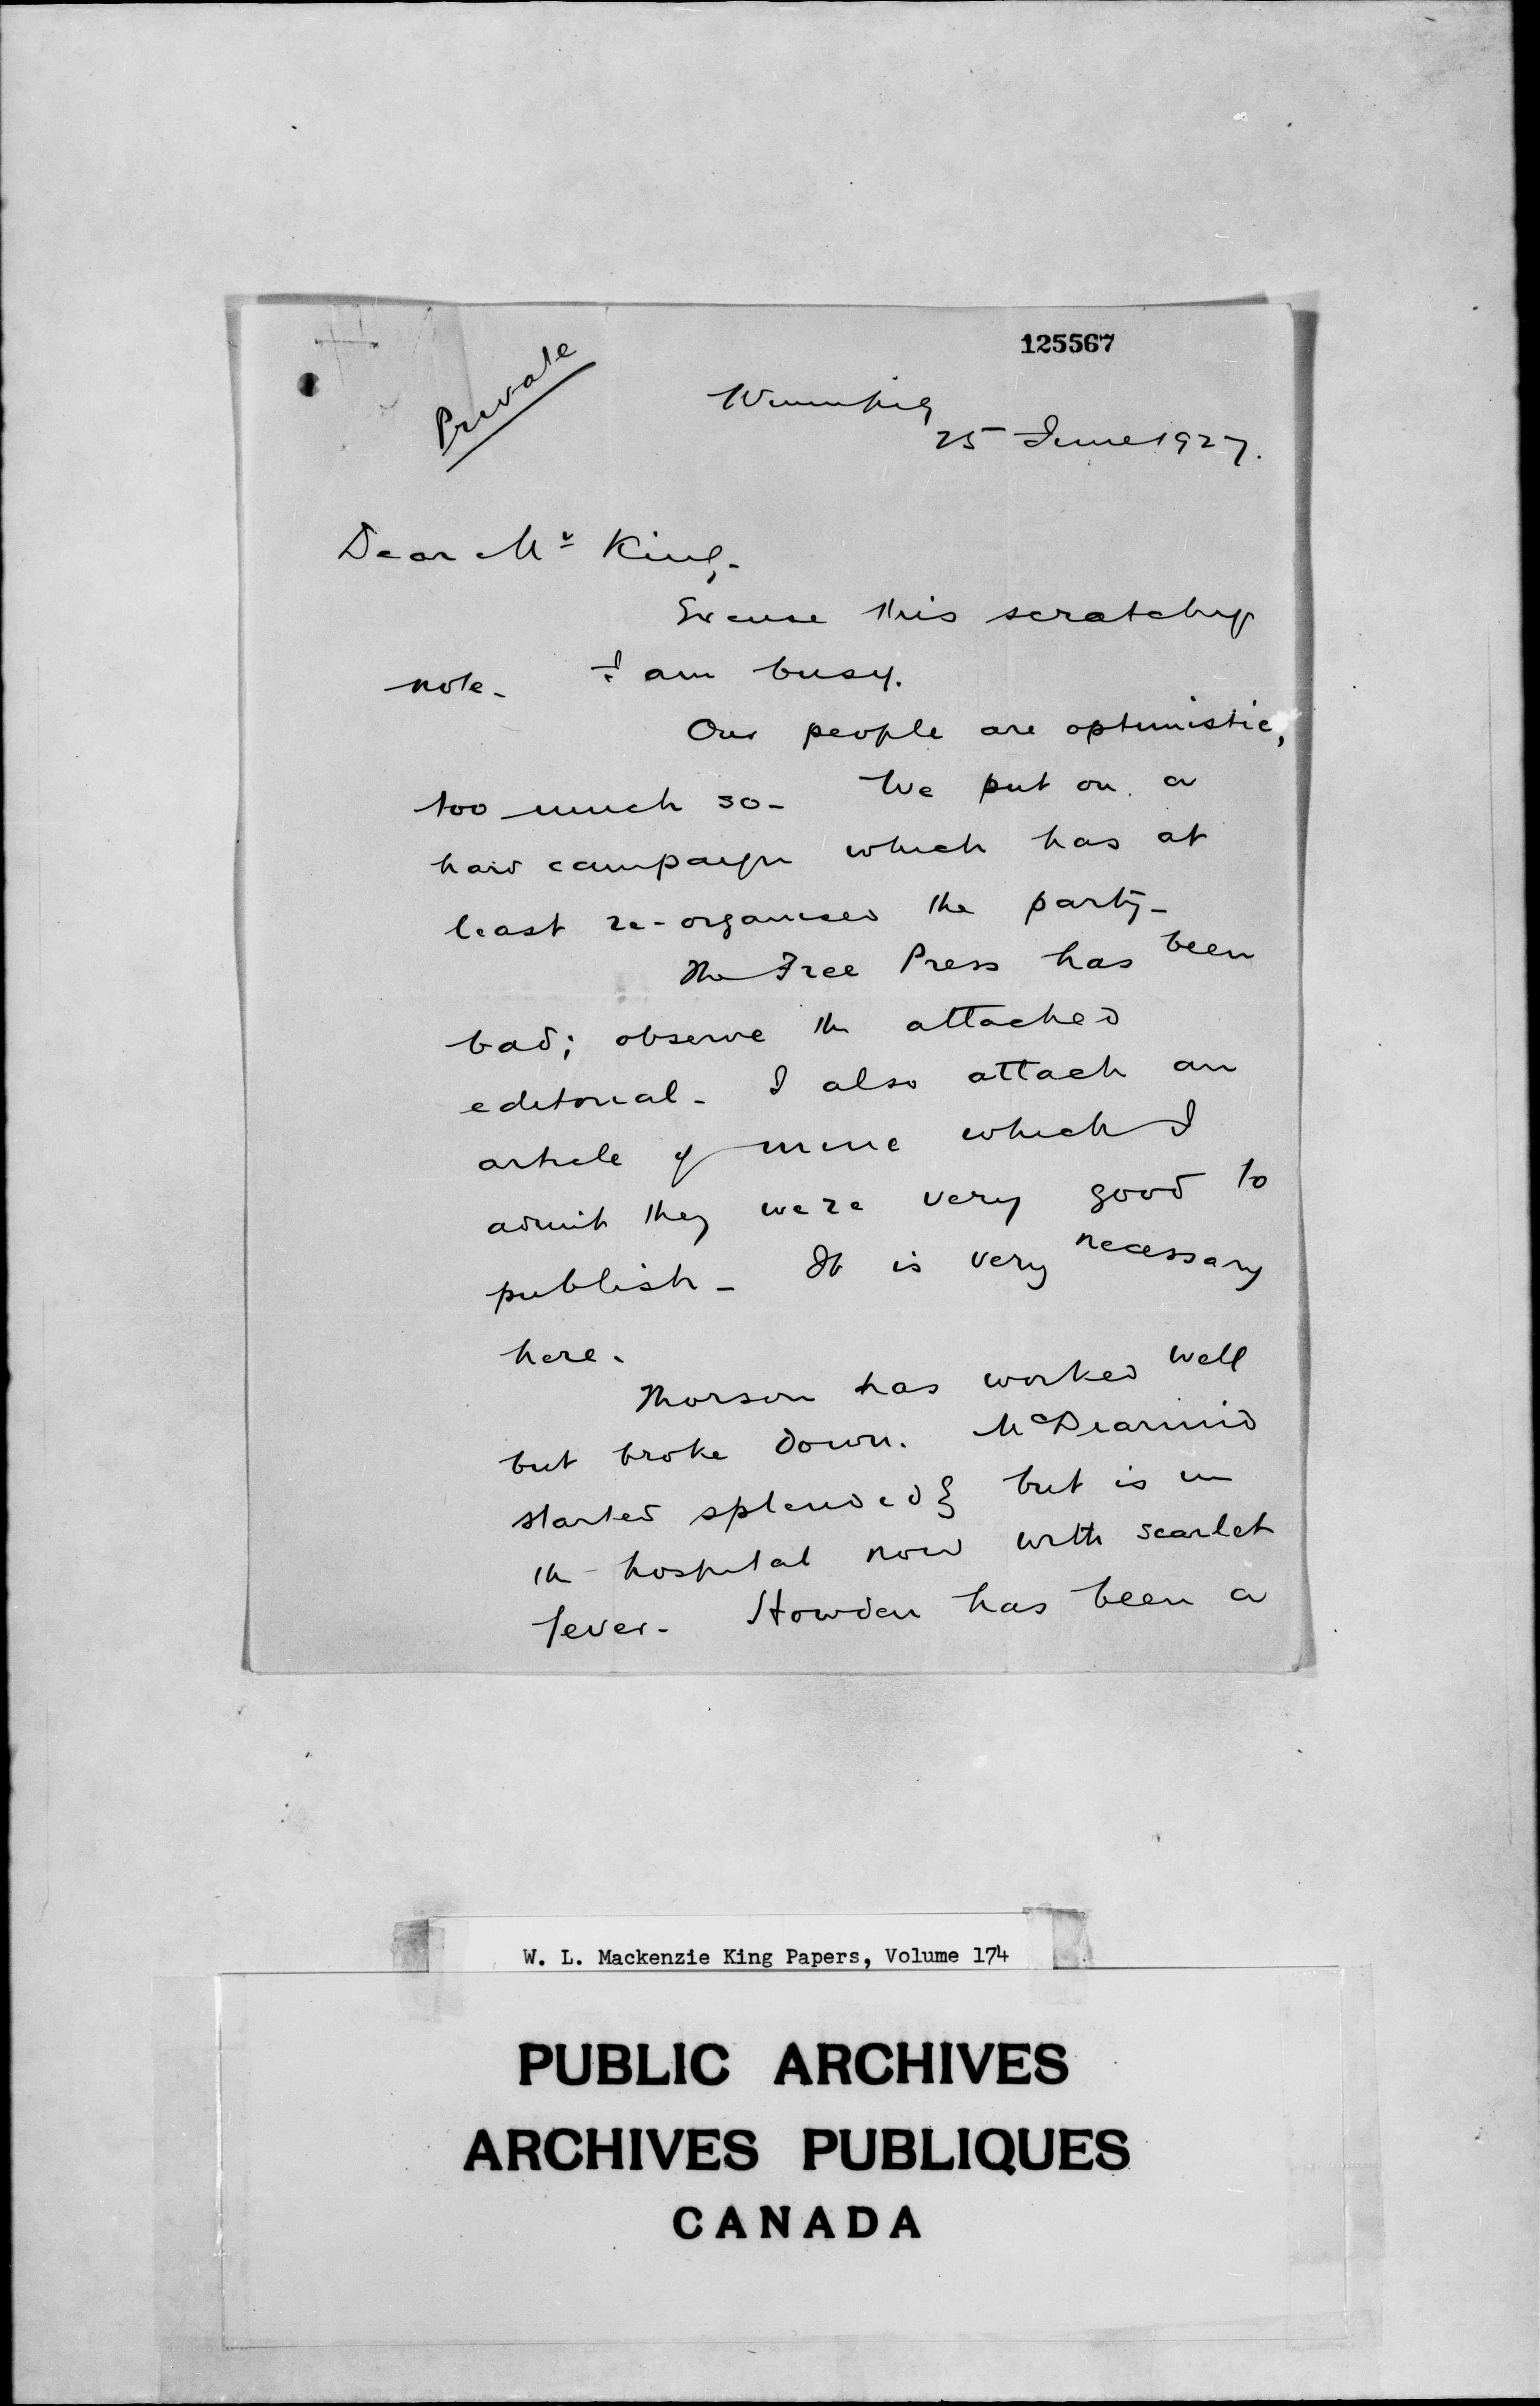 125567
Private
Winnipeg
25 June 1927.
Dear Mr King,-
Excuse this scratchy
note- I am busy.
Our people are optimistic,
too much so- We put on a
hard campaign which has at
least re-organised the party-
The Free Press has been
bad; observe the attached
editorial- I also attach an
article of mine which I
admit they were very good to
publish- It is very necessary
here.
Thorson has worked well
but broke down. McDiarmid
started splendidly but is in
the hospital now with scarlet
fever- Howden has been a
W. L. Mackenzie King Papers, Volume 174
PUBLIC ARCHIVES
ARCHIVES PUBLIQUES
CANADA